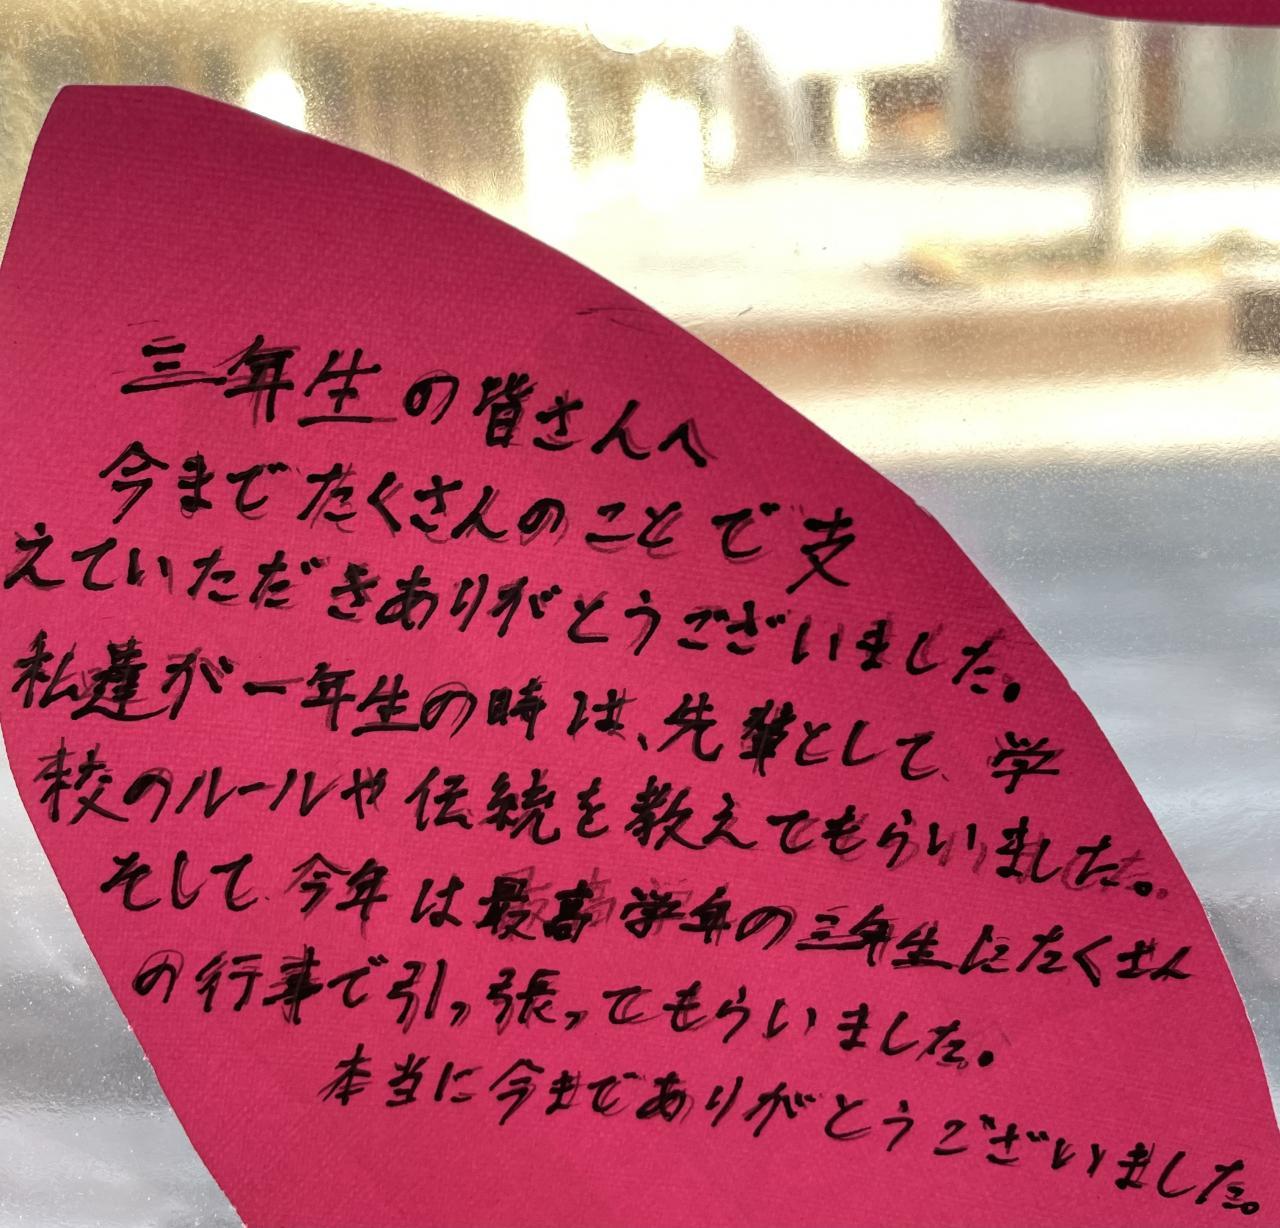 三年生の皆さんへ
今までたくさんのことで支
えていただきありがとうございました。
私達が一年生の時は、先輩として、学
校のルールや伝統を教えてもらいました。
そして、今年は最高学年の三年生にたくさん
の行事で引っ張ってもらいました。
本当に今までありがとうございました。